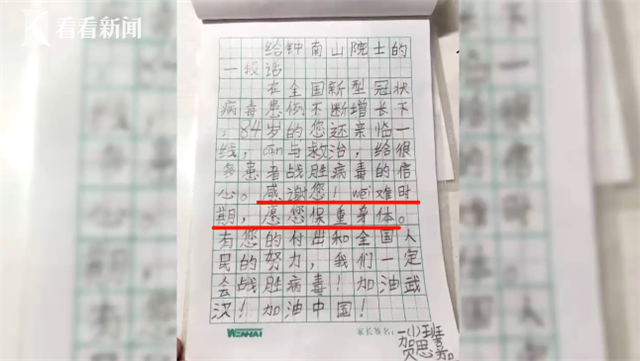 看看新闻
给钟南山院士的
一段话
在全国新型冠状
病毒患例不断增长下
，84岁的您还亲临一
线，can与救治，给很
多患者战胜病毒的信
心。感谢您！wei难时
期，愿您保重身体。
有您的付出和全国人
民的努力，我们一定
会战胜病毒！加油武
汉！加油中国！
WENHAI 家长签名：
一(1)班